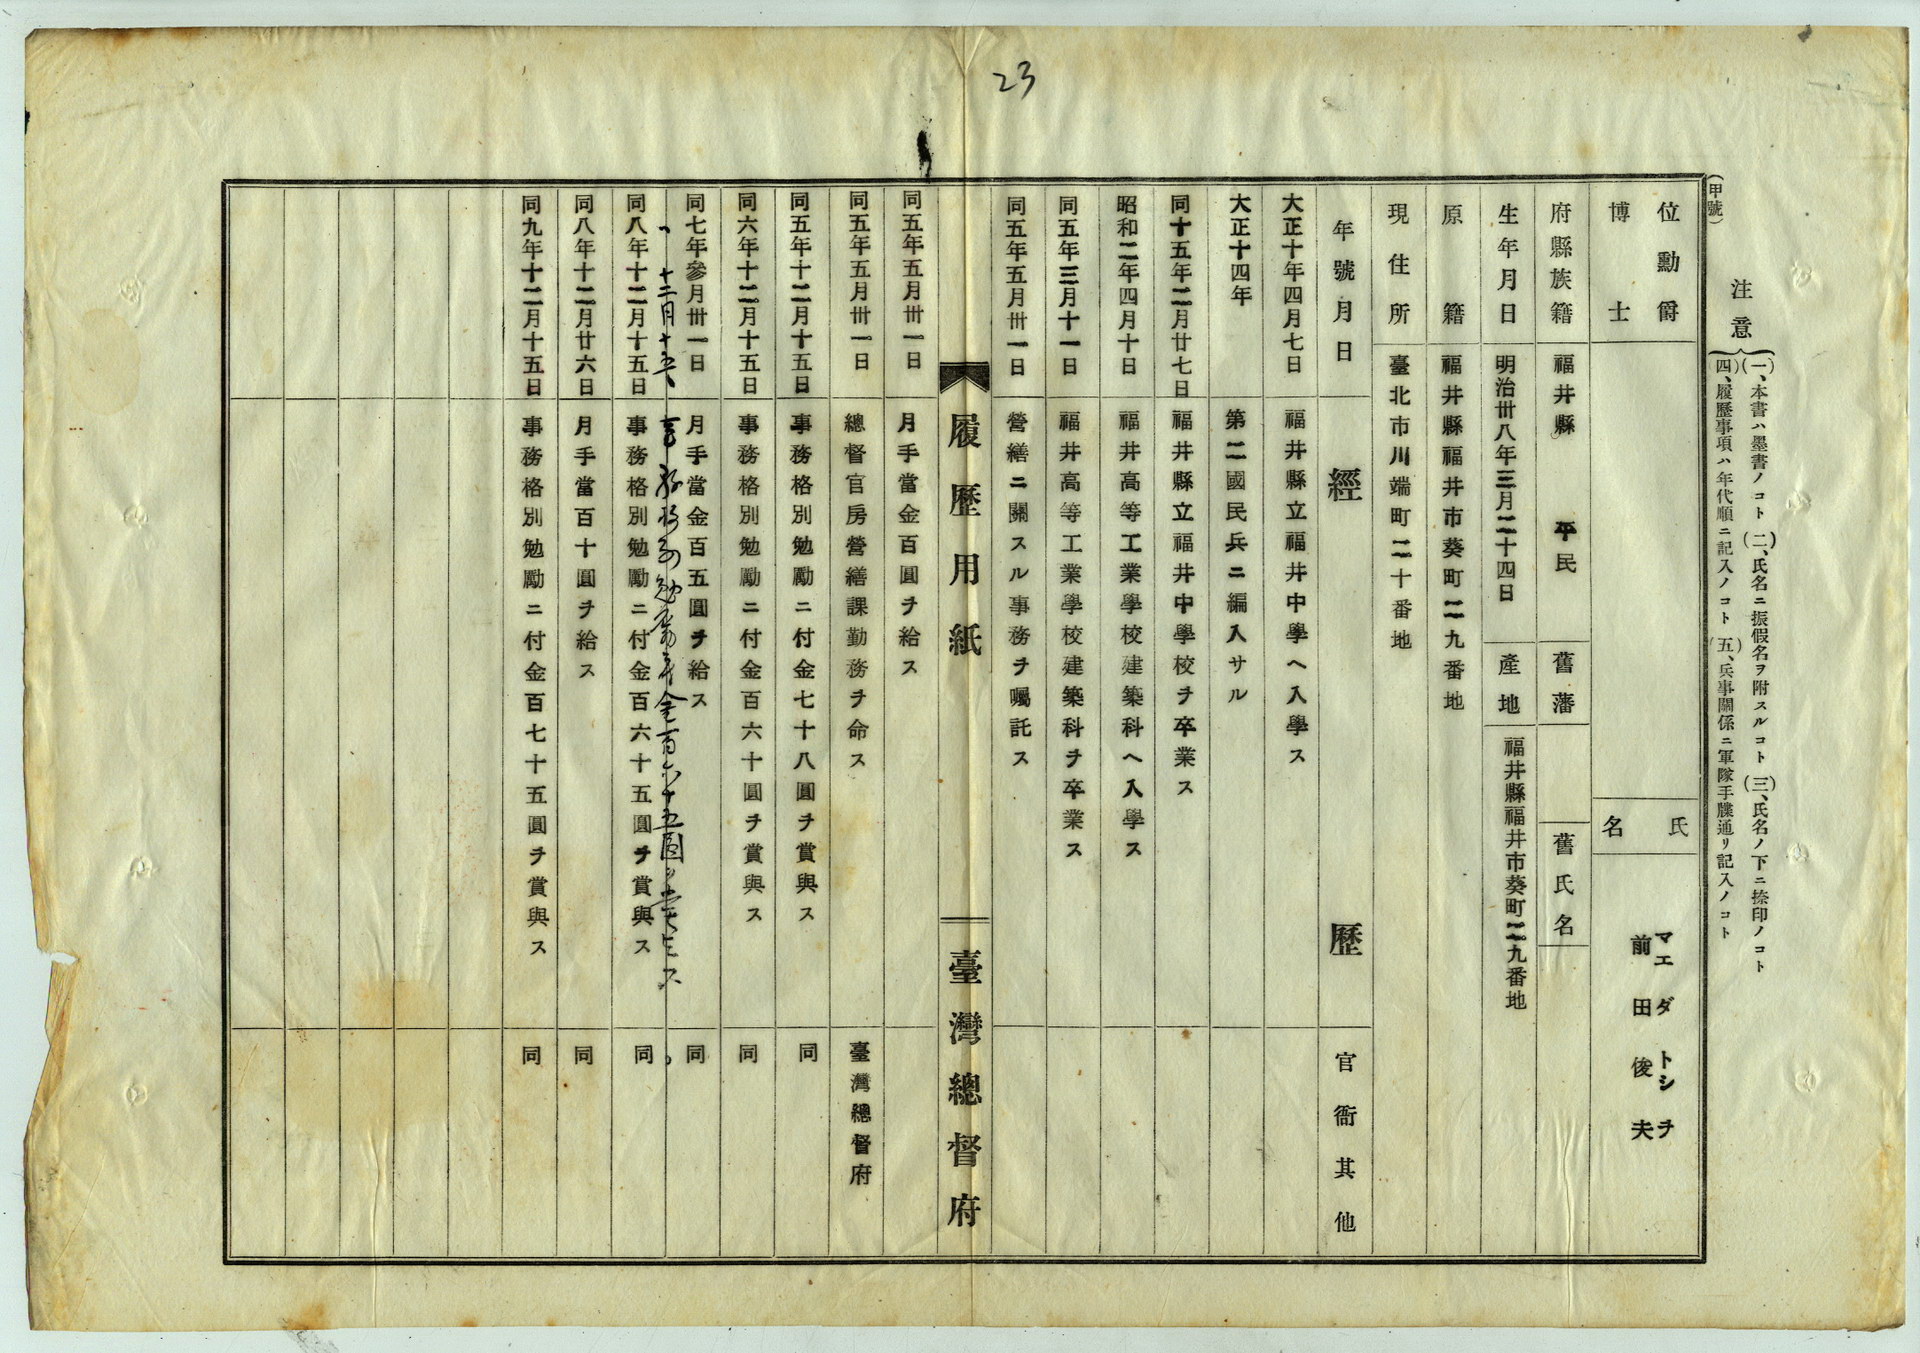 23
(甲號)
注意
(一)、本書ハ墨書ノコト (二)、氏名ニ振假名ヲ附スルコト (三)、氏名ノ下ニ捺印ノコト
(四)、履歷事項ハ年代順ニ記入ノコト (五)、兵事關係ニ軍隊手牒通リ記入ノコト
位勳爵
博士
氏名
マエダ トシヲ
前田俊夫
府縣族籍 福井縣 平民 舊藩 舊氏名
生年月日 明治卅八年三月二十四日 產地 福井縣福井市葵町二九番地
原籍 福井縣福井市葵町二九番地
現住所 臺北市川端町二十番地
年號月日 經歷 官衙其他
大正十年四月七日 福井縣立福井中學へ入學ス
大正十四年 第二國民兵ニ編入サル
同十五年二月廿七日 福井縣立福井中學校ヲ卒業ス
昭和二年四月十日 福井高等工業學校建築科へ入學ス
同五年三月十一日 福井高等工業學校建築科ヲ卒業ス
同五年五月卅一日 營繕ニ關スル事務ヲ囑託ス
履歷用紙 臺灣總督府
同五年五月卅一日 月手當金百圓ヲ給ス
同五年五月卅一日 總督官房營繕課勤務ヲ命ス 臺灣總督府
同五年十二月十五日 事務格別勉勵ニ付金七十八圓ヲ賞與ス 同
同六年十二月十五日 事務格別勉勵ニ付金百六十圓ヲ賞與ス 同
同七年參月卅一日 月手當金百五圓ヲ給ス 同
〃 十二月十五日 事務格別勉勵ニ付金百六十五圓ヲ賞与ス 〃
同八年十二月十五日 事務格別勉勵ニ付金百六十五圓ヲ賞與ス 同
同八年十二月廿六日 月手當百十圓ヲ給ス 同
同九年十二月十五日 事務格別勉勵ニ付金百七十五圓ヲ賞與ス 同